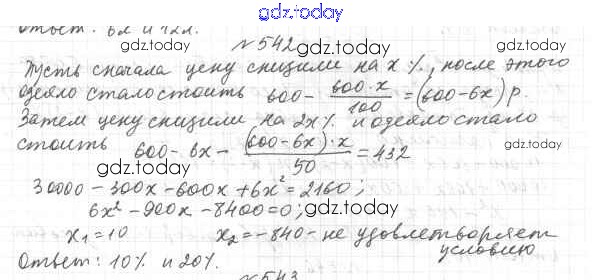 Ответ: 6л и 12л.
gdz.today
№542
gdz.today
gdz.today
Пусть сначала цену снизили на x %, после этого
одеяло стало стоить 600 - 600·x/100 = (600-6x) р.
gdz.today
gdz.today
Затем цену снизили на 2x% и одеяло стало
стоить 600 - 6x - (600-6x)·x/50 = 432
gdz.today
gdz.today
30000 - 300x - 600x + 6x² = 2160;
6x² - 900x - 8400 = 0;
gdz.today
gdz.today
x₁ = 10 x₂ = -840 - не удовлетворяет
условию
Ответ: 10% и 20%.
gdz.today
gdz.today
№543